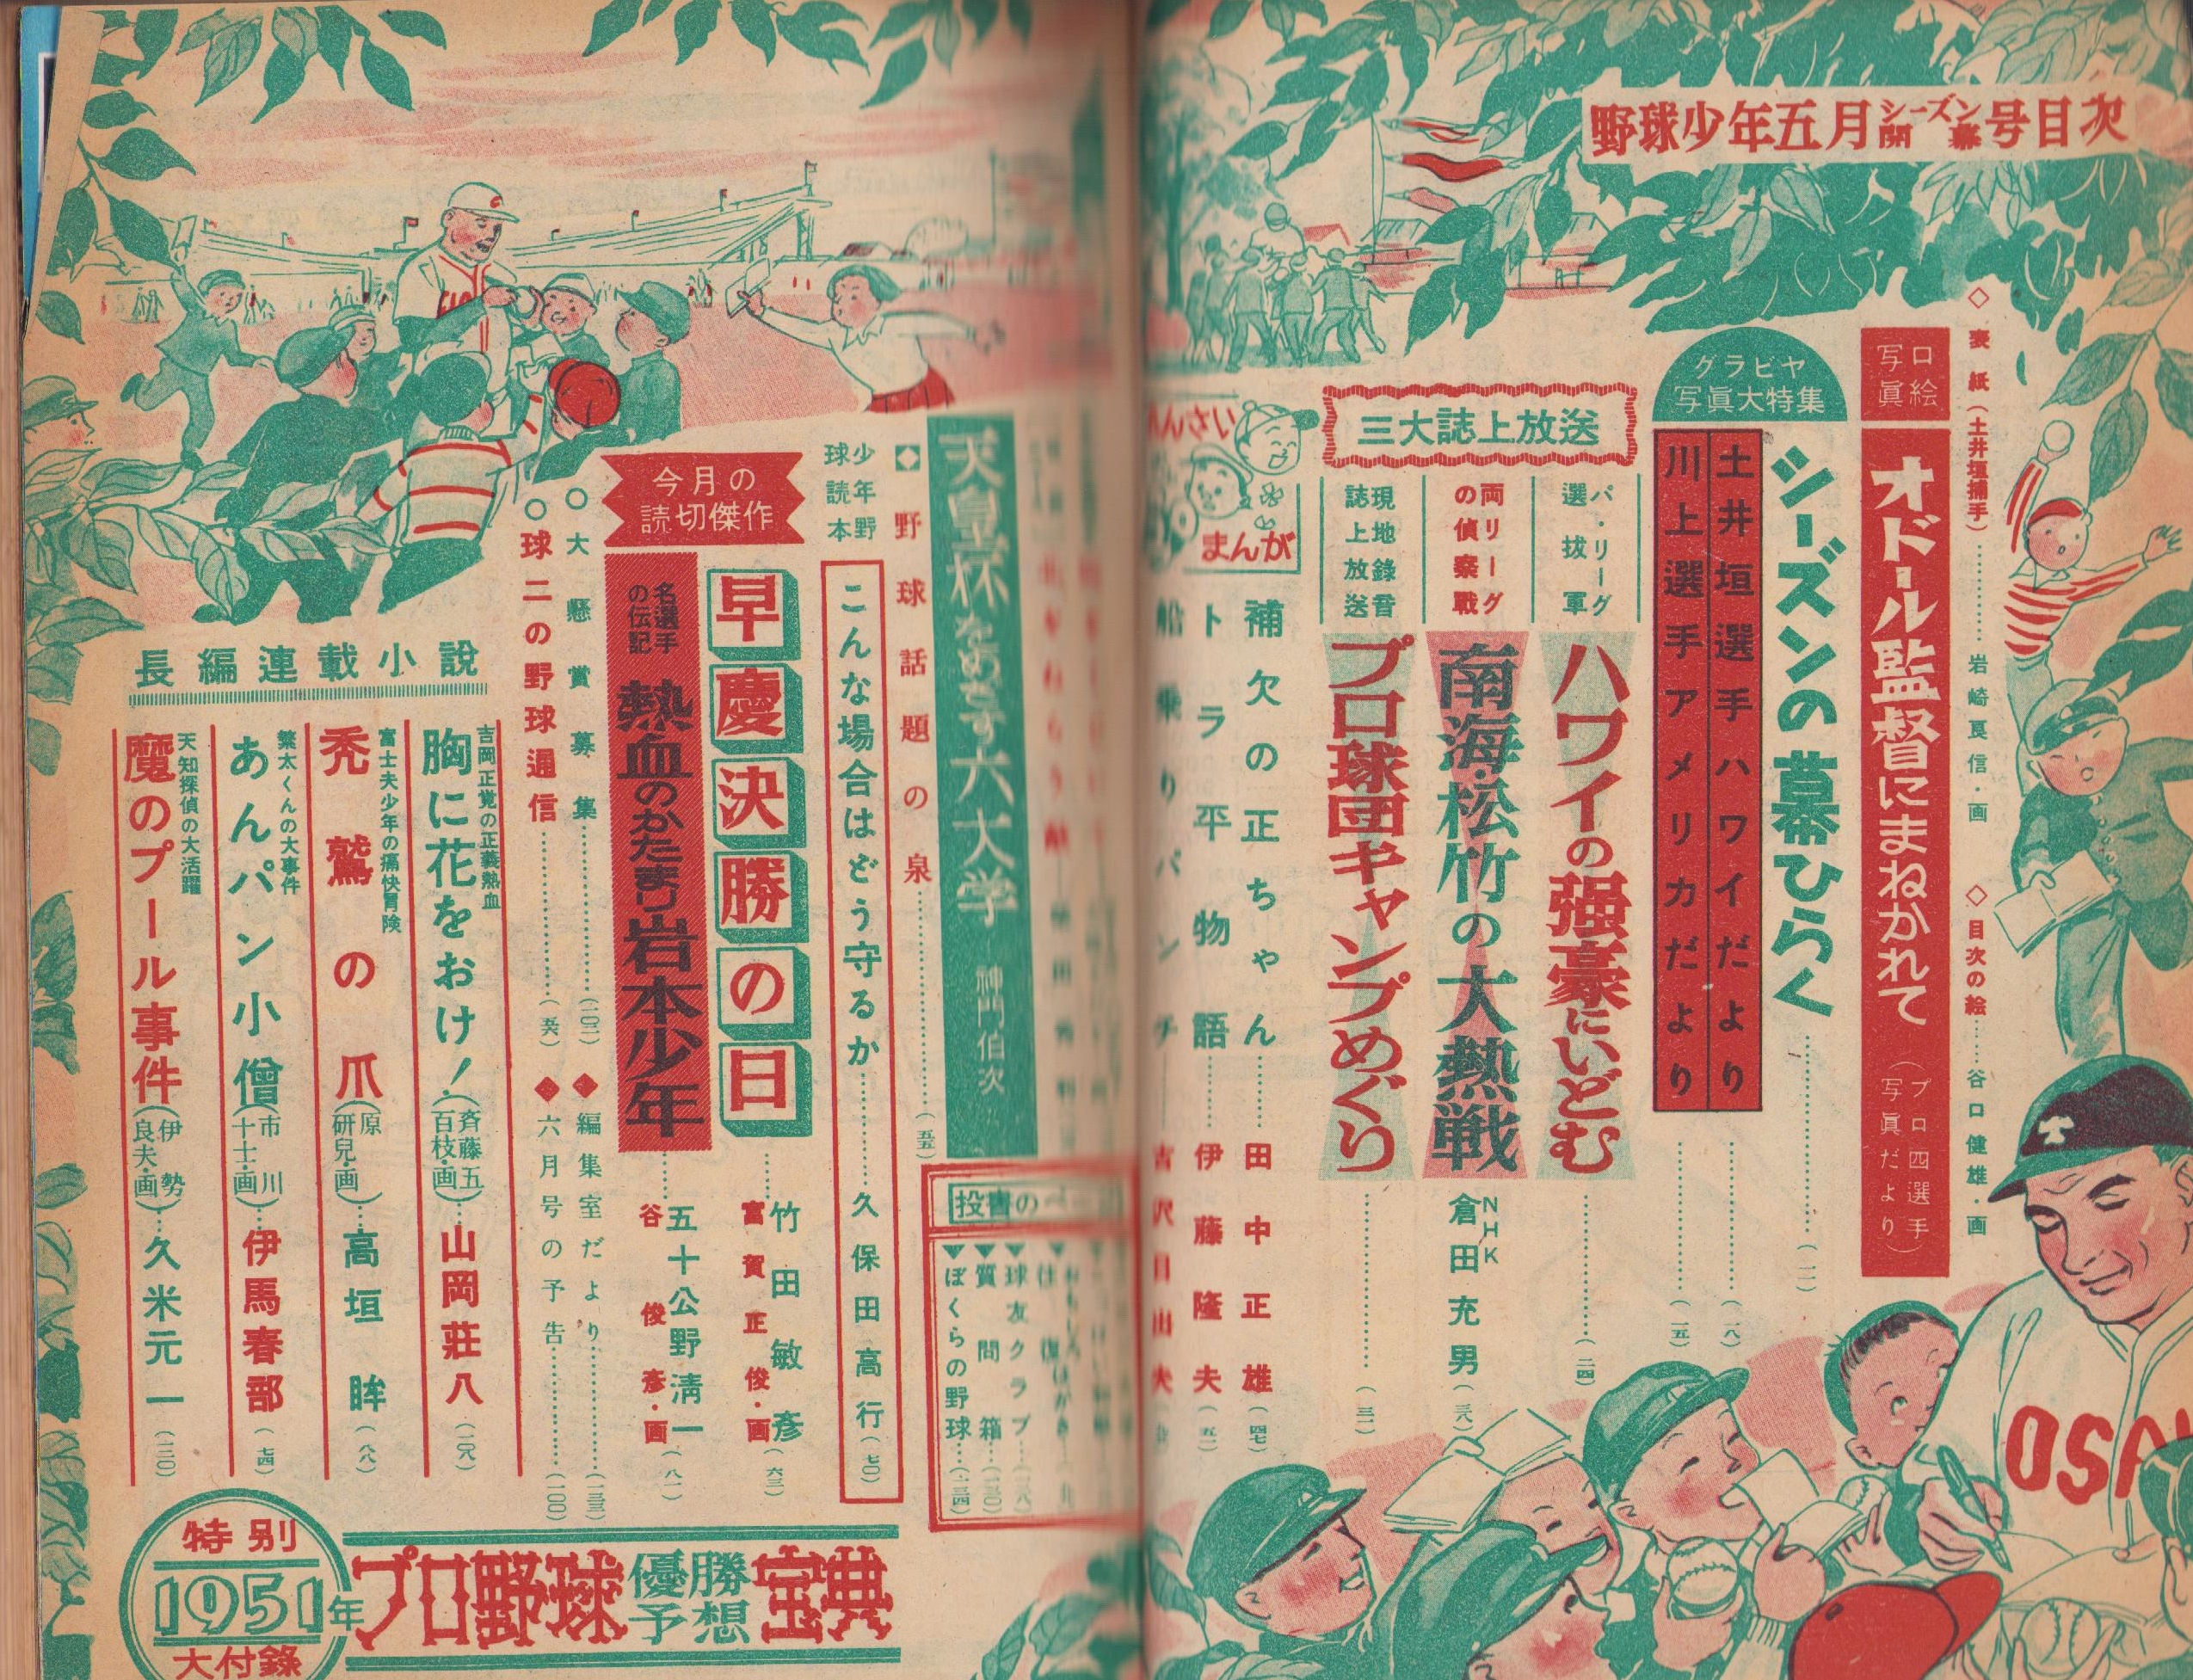 野球少年五月シーズン開幕号目次
◇表紙(土井垣捕手)…………岩崎良信・画
◇目次の絵……谷口健雄・画
口絵写眞
オドール監督にまねかれて(プロ四選手写眞だより)
グラビヤ写眞大特集
シーズンの幕ひらく……(一)
土井垣選手ハワイだより……(八)
川上選手アメリカだより……(一五)
三大誌上放送
パ・リーグ選抜軍
ハワイの强豪にいどむ……(二四)
両リーグの偵察戰
南海・松竹の大熱戦
NHK倉田充男(二八)
現地錄音誌上放送
プロ球団キャンプめぐり……(三一)
れんさいまんが
補欠の正ちゃん……田中正雄(四七)
トラ平物語……伊藤隆夫(五一)
船乗りパンチ
天皇杯をめざす六大学 神門伯次
投書の
往復はがき
球友クラブ…(一二八)
質問箱…(一三〇)
ぼくらの野球…(一三四)
◆野球話題の泉……(五五)
少年野球読本
こんな場合はどう守るか……久保田高行(七〇)
今月の読切傑作
早慶決勝の日……竹田敏彦(六三)
富賀正俊・画
名選手の伝記
熱血のかたまり岩本少年……五十公野淸一(八一)
谷俊彦・画
○大懸賞募集……(一〇二)
◆編集室だより……(一三三)
○球二の野球通信……(五六)
◆六月号の予告……(一〇〇)
長編連載小說
吉岡正覚の正義熱血
胸に花をおけ!(斉藤五百枝・画)…山岡荘八(一〇八)
富士夫少年の痛快冒険
禿鷲の爪(原研兒・画)…高垣眸(八八)
繁太くんの大事件
あんパン小僧(市川十士・画)…伊馬春部(七四)
天知探偵の大活躍
魔のプール事件(伊勢良夫・画)…久米元一(一二〇)
特別
1951年
大付錄
プロ野球優勝予想宝典
OSA